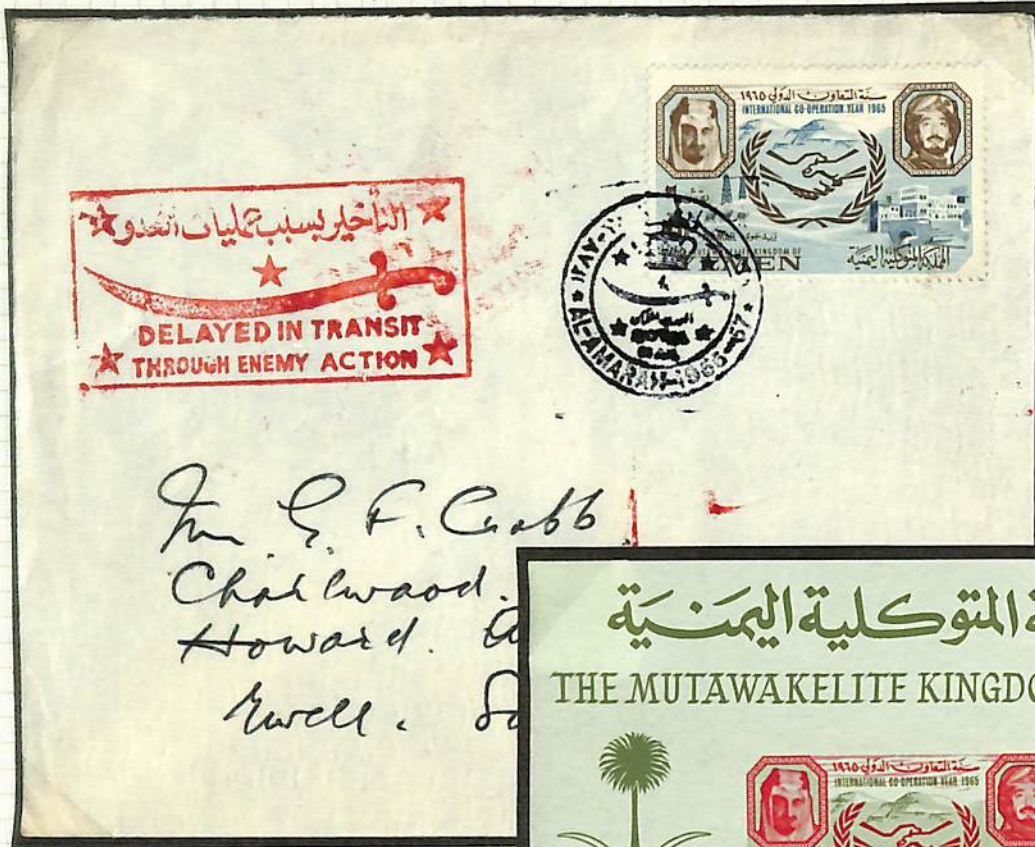 سنة التعاون الدولي ١٩٦٥
INTERNATIONAL CO-OPERATION YEAR 1965
KINGDOM OF
YEMEN
المملكة المتوكلية اليمنية
التأخير بسبب عمليات العدو
DELAYED IN TRANSIT
THROUGH ENEMY ACTION
AL-AMARAH-1966-67
F. Crabb
Howard.
Ewell.
المتوكلية اليمنية
THE MUTAWAKELITE KINGDO
سنة التعاون الدولي ١٩٦٥
INTERNATIONAL CO-OPERATION YEAR 1965